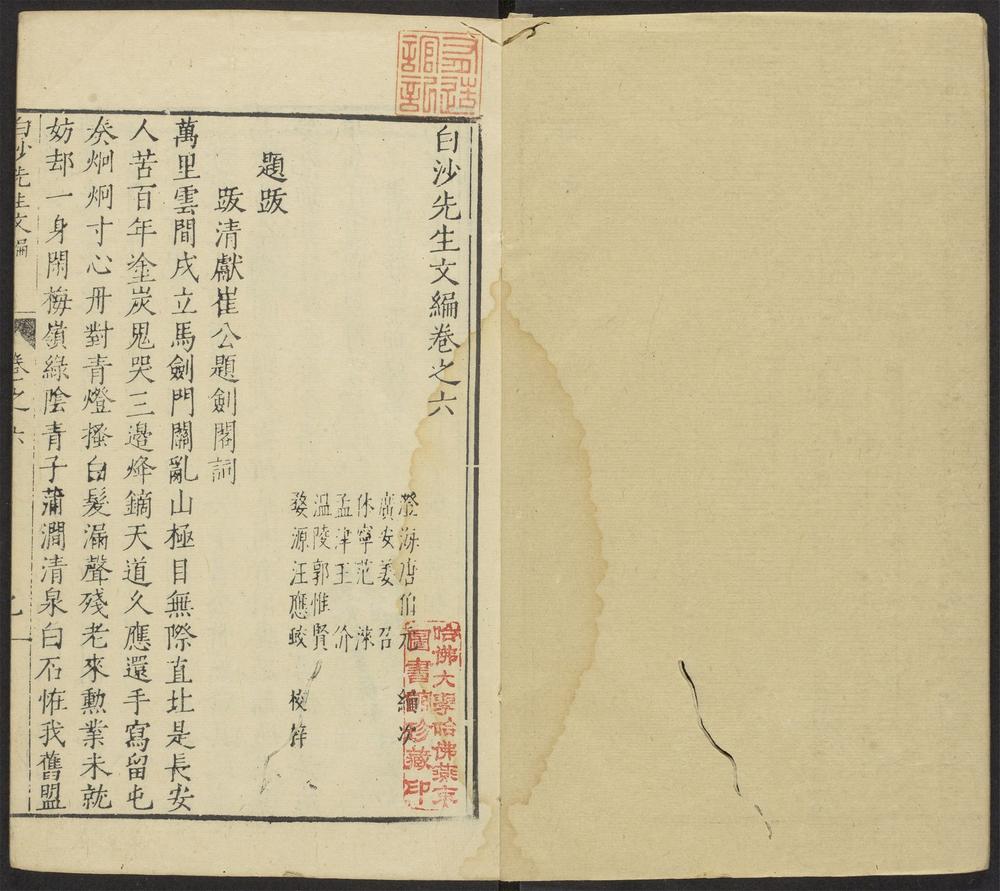 白沙先生文編卷之六
澄海唐伯元 編次
廣安姜 召
休寧范 淶
孟津王 价
溫陵郭惟賢
婺源汪應蛟 校梓
題跋
跋清獻崔公題劍閣詞
萬里雲間戍立馬劍門關亂山極目無際直北是長安
人苦百年塗炭鬼哭三邊烽鏑天道久應還手寫留屯
奏炯炯寸心丹對青燈搔白髮漏聲殘老來勳業未就
妨却一身閑梅嶺綠陰青子蒲澗清泉白石恠我舊盟
白沙先生文編 卷之六
哈佛大學哈佛燕京
圖書館珍藏印